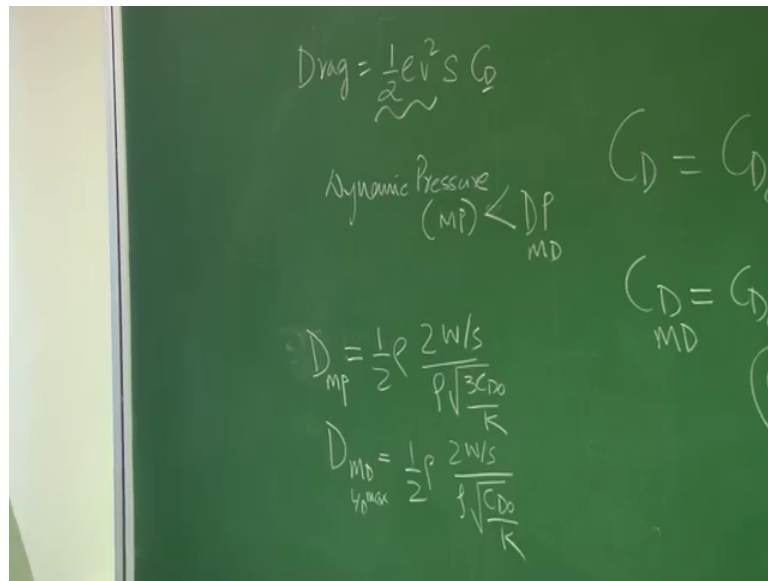 Drag = 1/2 ρv² S C_D
Dynamic Pressure
(MP) < DP
MD
C_D = C_D
C_D = C_D
MD
D_MP = 1/2 ρ 2W/S / ρ√(3C_D0/K)
D_MD = 1/2 ρ 2W/S / ρ√(C_D0/K)
L/D max